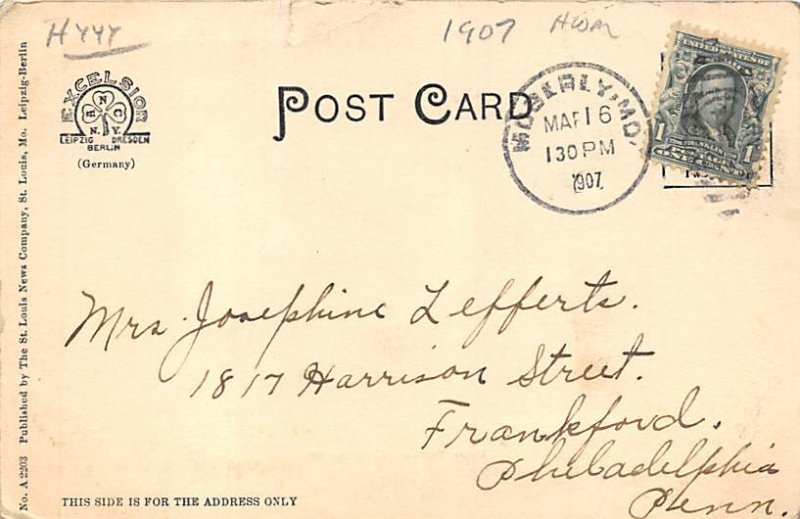 H yyy
1907
EXCELSIOR
N
N.Y.
LEIPZIG DRESDEN
BERLIN
(Germany)
POST CARD
MOBERLY, MO.
MAR 16
1 30 PM
1907
UNITED STATES OF
FRANKLIN
POSTAGE
1 ONE CENT 1
Mrs. Josephine Lefferts.
1817 Harrison Street.
Frankford.
Philadelphia
Penn.
THIS SIDE IS FOR THE ADDRESS ONLY
No. A 2203 Published by The St. Louis News Company, St. Louis, Mo. Leipzig-Berlin